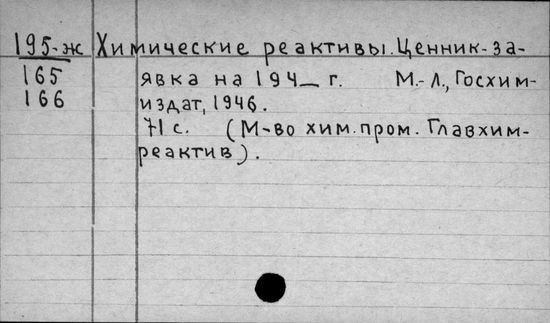 195-ж Химические реактивы. Ценник-за-
165 явка на 194_ г. М.-Л., Госхим-
166 издат, 1946.
71 с. (М-во хим. пром. Главхим-
реактив).